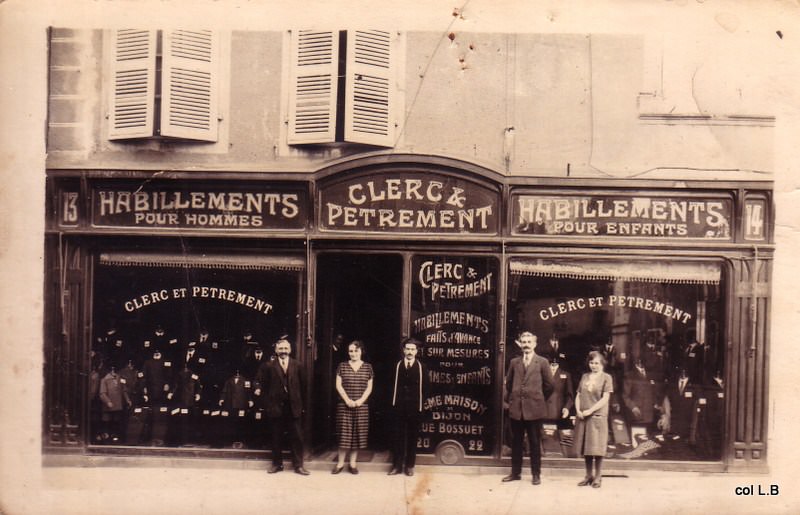 13
HABILLEMENTS
POUR HOMMES
CLERC &
PETREMENT
HABILLEMENTS
POUR ENFANTS
14
CLERC ET PETREMENT
CLERC &
PETREMENT
HABILLEMENTS
FAITS D'AVANCE
ET SUR MESURES
POUR
MES & ENFANTS
ME MAISON
À
DIJON
UE BOSSUET
20 22
CLERC ET PETREMENT
col L.B